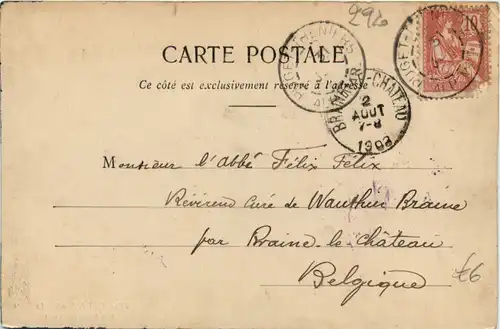 2920
CARTE POSTALE
Ce côté est exclusivement réservé à l'adresse
10
PUGET-THÉNIERS
BRAINE-LE-CHÂTEAU
2
AOUT
7-8
1903
Monsieur l'Abbé Félix Félix
Révérend Curé de Wauthier Braine
par Braine-le-Château
Belgique
£6